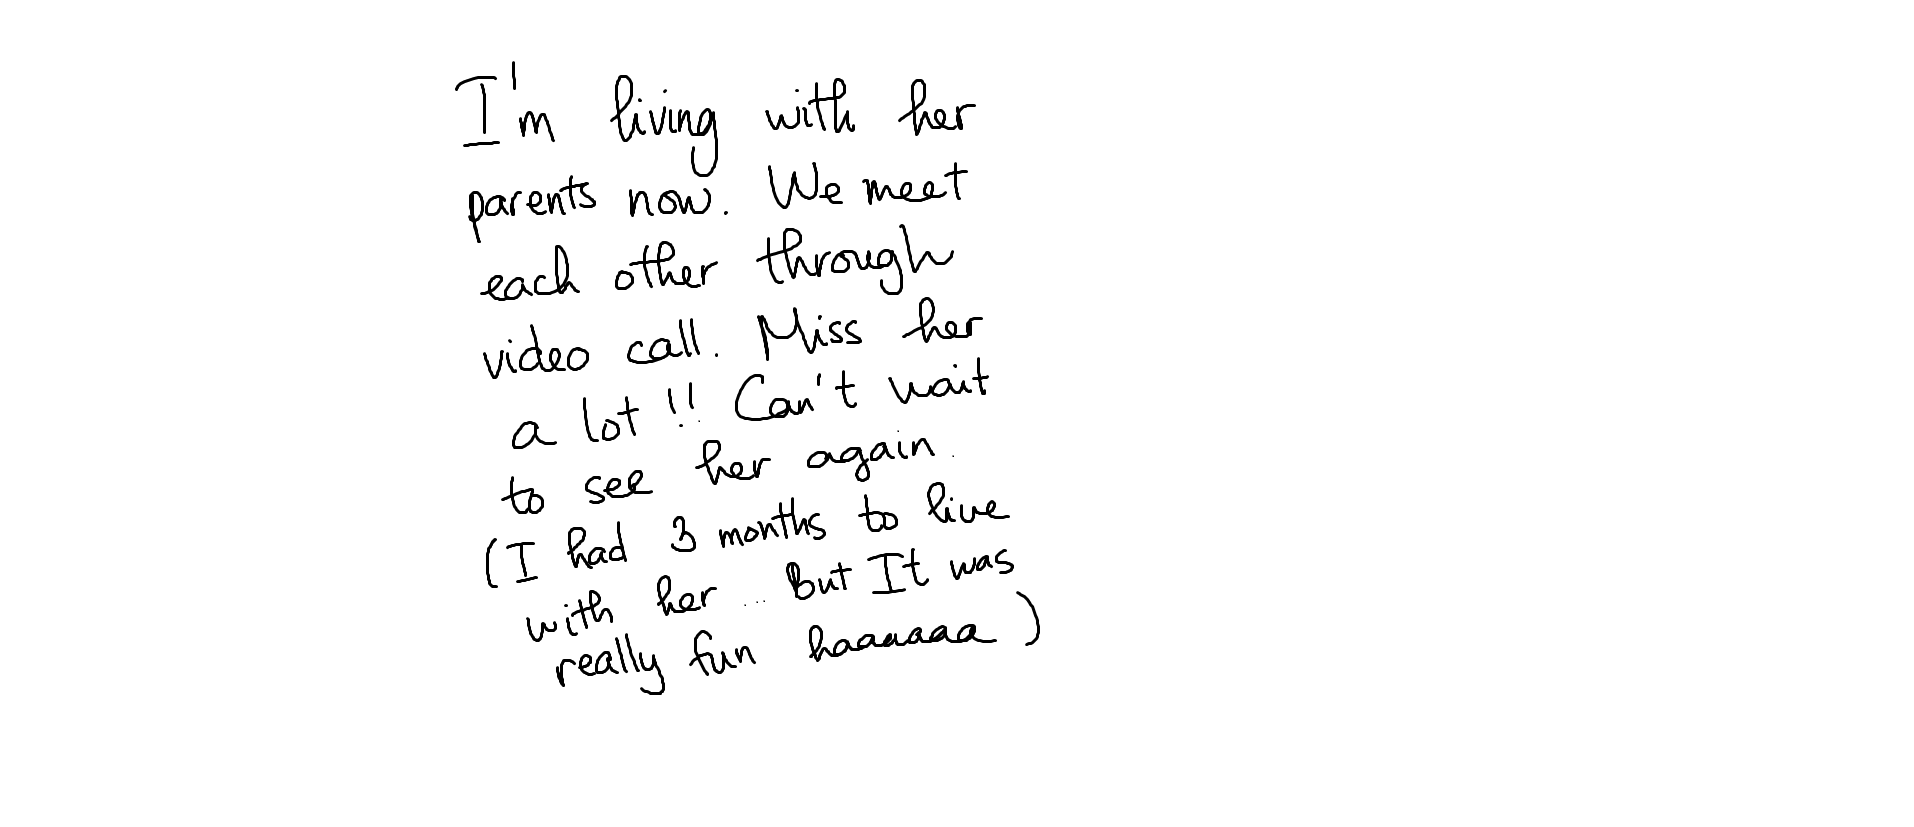 I'm living with her
parents now. We meet
each other through
video call. Miss her
a lot!! Can't wait
to see her again.
(I had 3 months to live
with her ... But It was
really fun haaaaaa)